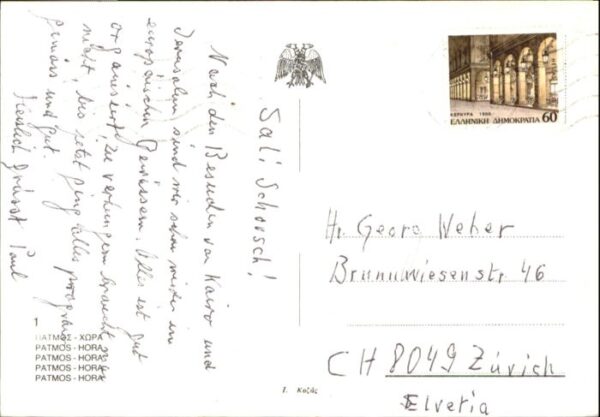 Sali Schorsch!
Nach den Besuchen von Kairo und
Jerusalem sind wir schon wieder in
europäischen Gewässern. Alles ist gut
organisiert, zu verlängern braucht man
nicht, bis jetzt ging alles program
gemäss und gut.
Herzlich grüsst Paul
ΚΕΡΚΥΡΑ 1988
ΕΛΛΗΝΙΚΗ ΔΗΜΟΚΡΑΤΙΑ 60
Hr. Georg Weber
Brunnwiesenstr 46
CH 8049 Zürich
Elvetia
1
ΠΑΤΜΟΣ - ΧΩΡΑ
PATMOS - HORA
PATMOS - HORA
PATMOS - HORA
PATMOS - HORA